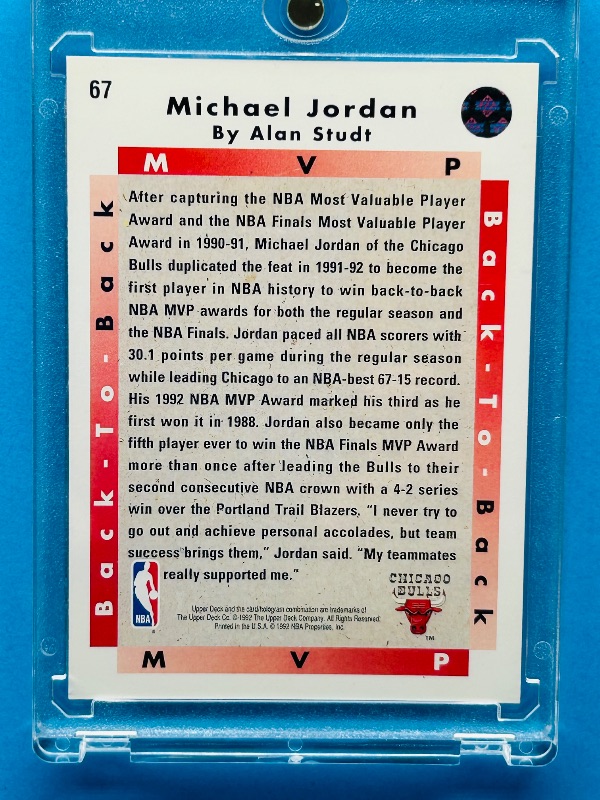 67
Michael Jordan
By Alan Studt
M V P
Back-To-Back
Back-To-Back
After capturing the NBA Most Valuable Player
Award and the NBA Finals Most Valuable Player
Award in 1990-91, Michael Jordan of the Chicago
Bulls duplicated the feat in 1991-92 to become the
first player in NBA history to win back-to-back
NBA MVP awards for both the regular season and
the NBA Finals. Jordan paced all NBA scorers with
30.1 points per game during the regular season
while leading Chicago to an NBA-best 67-15 record.
His 1992 NBA MVP Award marked his third as he
first won it in 1988. Jordan also became only the
fifth player ever to win the NBA Finals MVP Award
more than once after leading the Bulls to their
second consecutive NBA crown with a 4-2 series
win over the Portland Trail Blazers. "I never try to
go out and achieve personal accolades, but team
success brings them," Jordan said. "My teammates
really supported me."
NBA
CHICAGO
BULLS
TM
Upper Deck and the card/hologram combination are trademarks of
The Upper Deck Co. © 1992 The Upper Deck Company. All Rights Reserved.
Printed in the U.S.A. © 1992 NBA Properties, Inc.
M V P